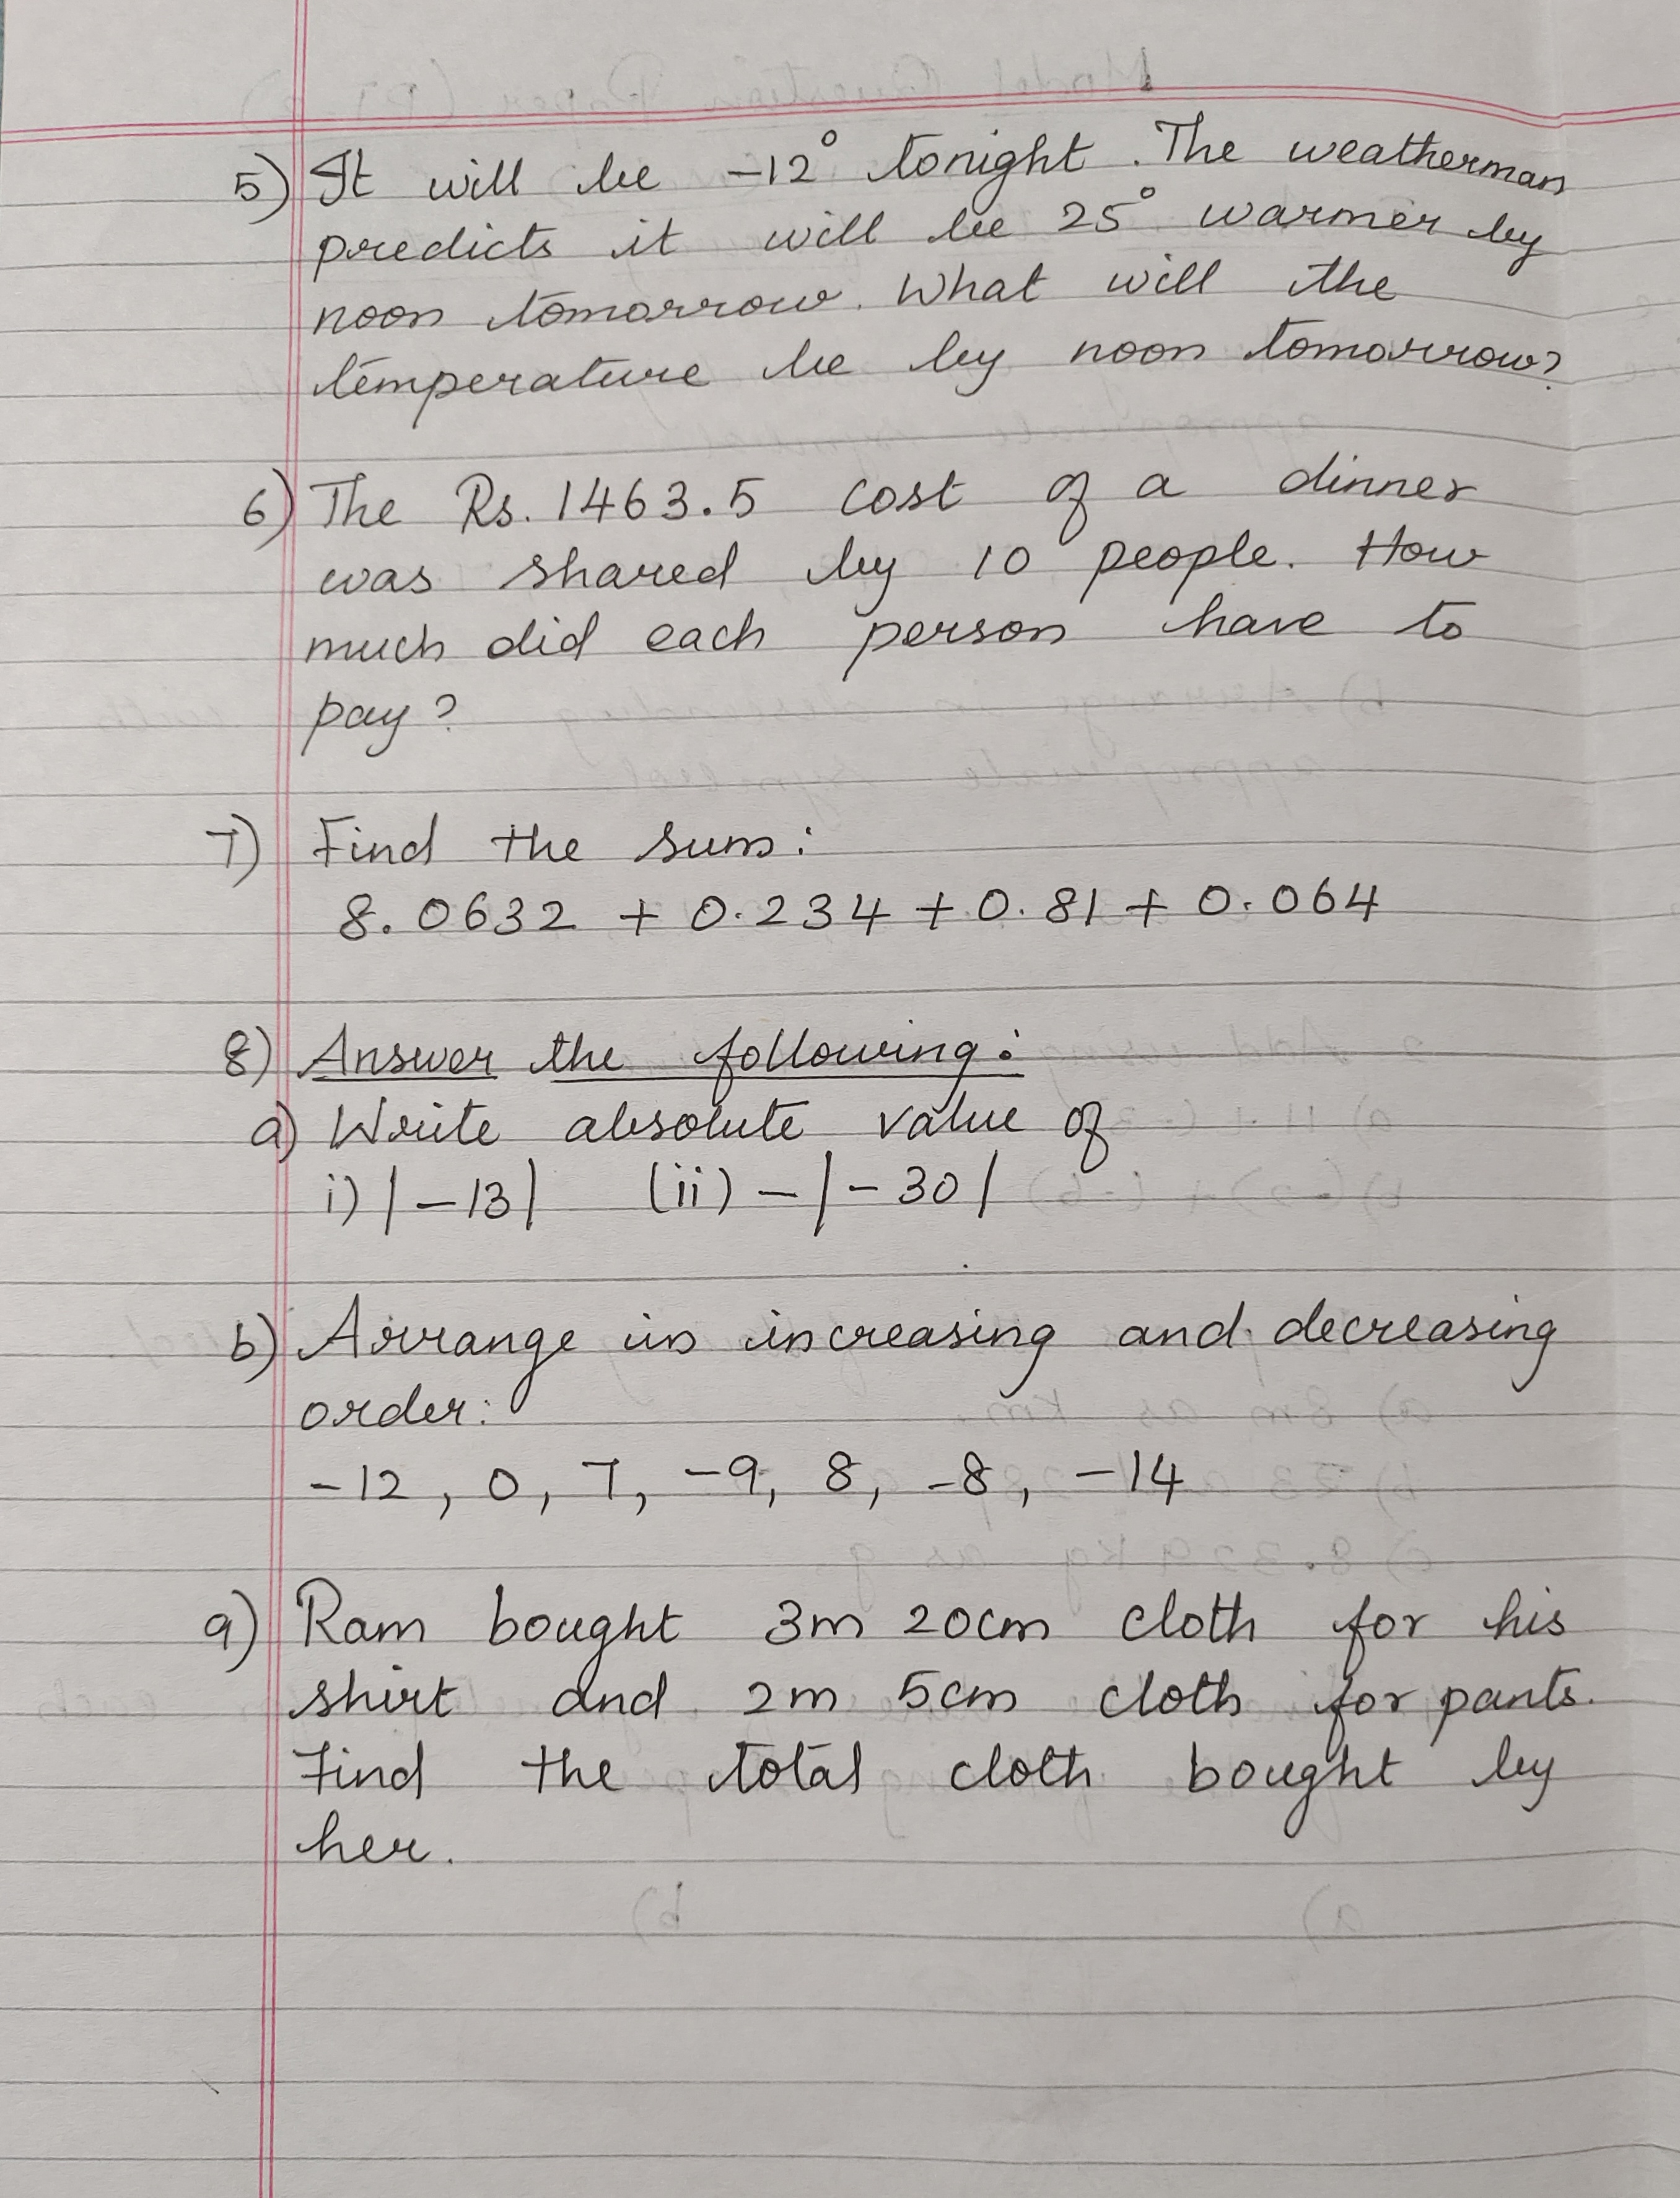 5) It will be -12° tonight. The weatherman
predicts it will be 25° warmer by
noon tomorrow. What will the
temperature be by noon tomorrow?
6) The Rs. 1463.5 cost of a dinner
was shared by 10 people. How
much did each person have to
pay?
7) Find the sum:
8.0632 + 0.234 + 0.81 + 0.064
8) Answer the following:
a) Write absolute value of
i) |-13| (ii) -|-30|
b) Arrange in increasing and decreasing
order:
-12, 0, 7, -9, 8, -8, -14
9) Ram bought 3m 20cm cloth for his
shirt and 2m 5cm cloth for pants.
Find the total cloth bought by
her.